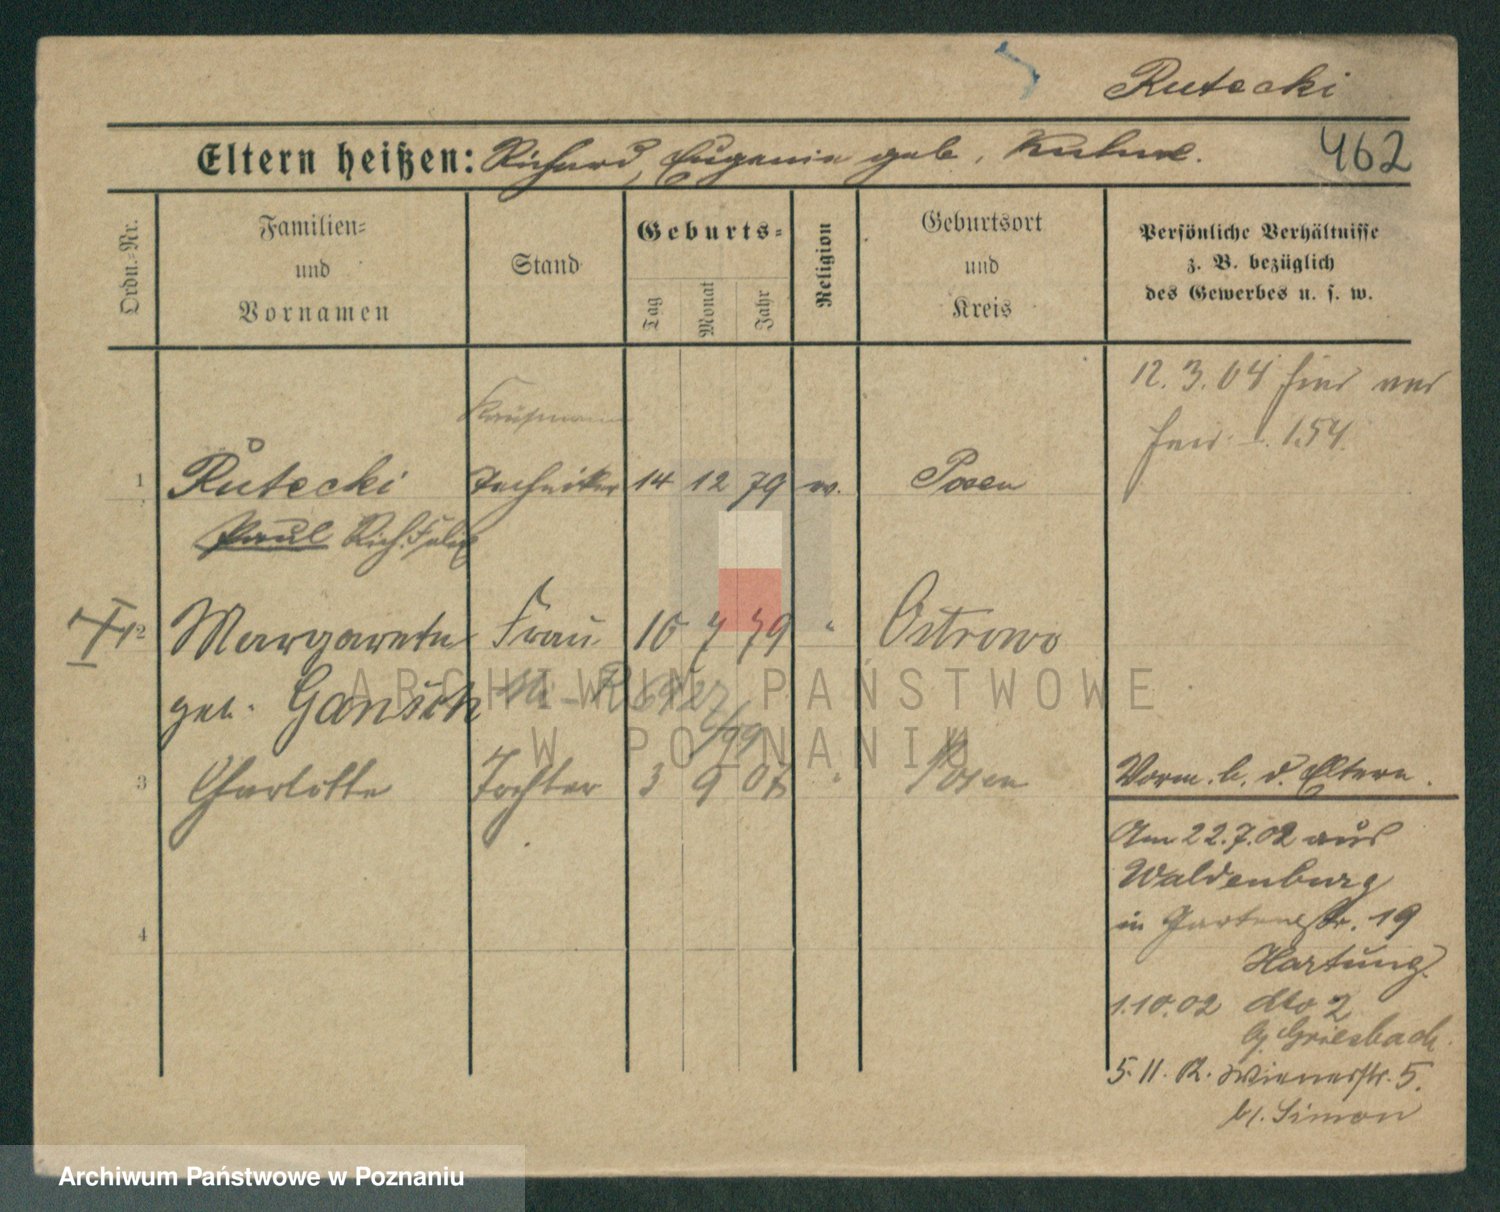 Rutecki
462
Eltern heißen: Richard, Eugenie geb.
Ordn.-Nr.
Familien- und Vornamen
Stand
Geburts-
Tag
Monat
Jahr
Religion
Geburtsort und Kreis
Persönliche Verhältnisse z. B. bezüglich des Gewerbes u. s. w.
12. 3. 04
154.
Kaufmann
1 Rutecki Techniker 14 12 79 Posen
Paul Rich. Felix
2 Margarete Frau 10 7 79 " Ostrowo
geb.
3 Charlotte Tochter 3 9 " Posen
Vorm. b. d. Eltern.
Am 22.7.02 aus
Waldenburg
in Gartenstr. 19
Hartung.
1.10.02 dto 2
Griesbach.
5. 11. Wienerstr. 5.
b/. Simon
4
ARCHIWUM PAŃSTWOWE
W POZNANIU
Archiwum Państwowe w Poznaniu